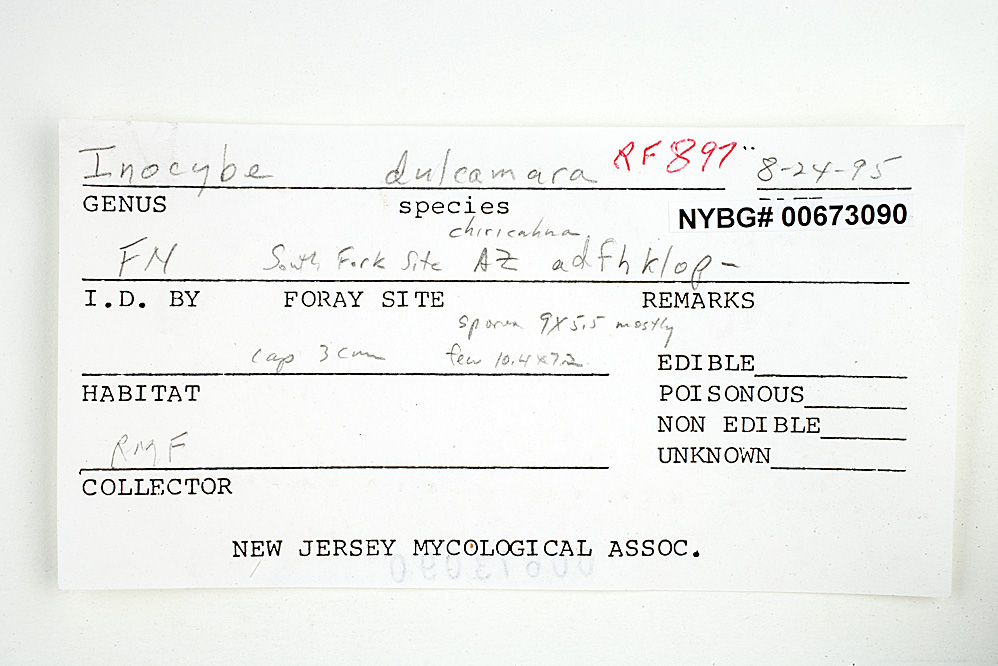 Inocybe dulcamara RF 897 8-24-95
GENUS species NYBG# 00673090
chiricahua
FM South Fork Site AZ adfhklop-
I.D. BY FORAY SITE REMARKS
spores 9X5.5 mostly
cap 3cm few 10.4x7.2
EDIBLE
HABITAT
POISONOUS
NON EDIBLE
RMF
UNKNOWN
COLLECTOR
NEW JERSEY MYCOLOGICAL ASSOC.
00673090